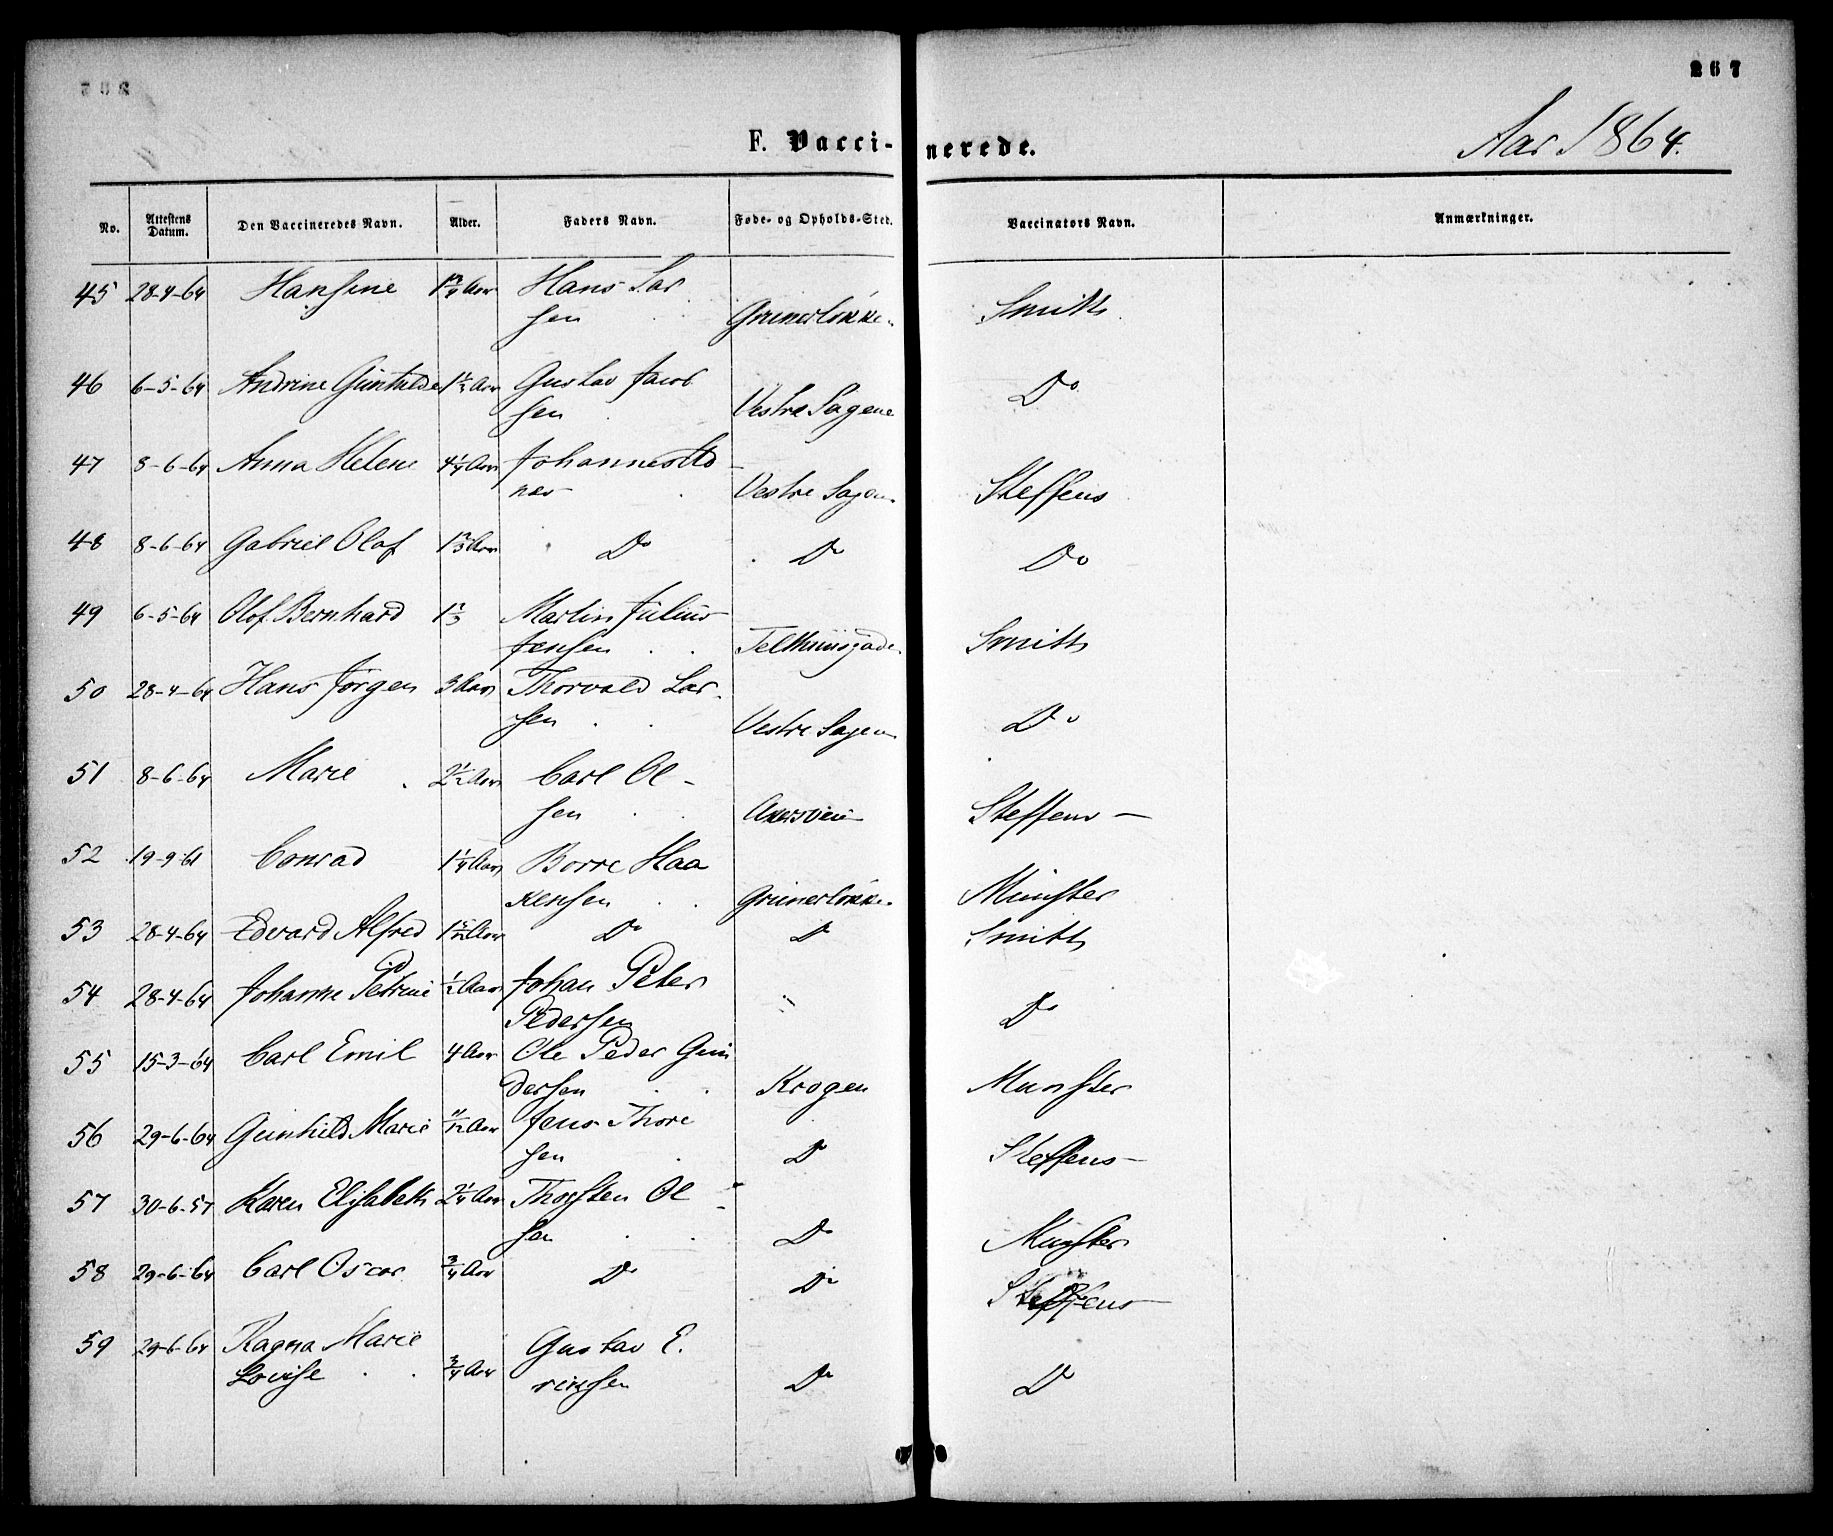 267
F. Vaccinerede.
Aar 1864.
No. Attestens Datum. Den Vaccineredes Navn. Alder. Faders Navn. Føde- og Opholds-Sted. Vaccinators Navn. Anmærkninger.
45 28-4-64 Hansine Aar Hans Lar
sen Grünerløkke Smith
46 6-5-64 Andrine Gunhilde 1½ Aar Gustav Jacob
sen Vestre Sagene Do
47 8-6-64 Anna Helene 4¼ Aar Johannes
Vestre Sagene Steffens
48 8-6-64 Gabriel Olaf 1⅔ Aar Do Do Do
49 6-5-64 Olaf Bernhard 1⅔ Martin Julius
Jensen Telthusgade Smith
50 28-4-64 Hans Jørgen 3 Aar Thorvald Lar
sen Vestre Sagene Do
51 8-6-64 Marie 2½ Aar Carl Ol-
sen Akersveien Steffens
52 19-9-61 Conrad 1¼ Aar Borre Haa
kensen Grünerløkke Münster
53 28-4-64 Edvard Alfred Aar Do Do Smith
54 28-4-64 Johanne Petrine ½ Aar Johan Peter
Pedersen " Do
55 15-3-64 Carl Emil 4 Aar Ole Peder Gun
dersen Krogen Munster
56 29-6-64 Gunhild Marie 11/12 Aar Jens Thore
sen Do Steffens
57 30-6-57 Karen Elisabeth 2¼ Aar Thorsten Ol-
sen Do Munster
58 29-6-64 Carl Oscar ¾ Aar Do Do Steffens
59 29-6-64 Ragna Marie Gustav E.
Lovise ¾ Aar ricksen Do Do